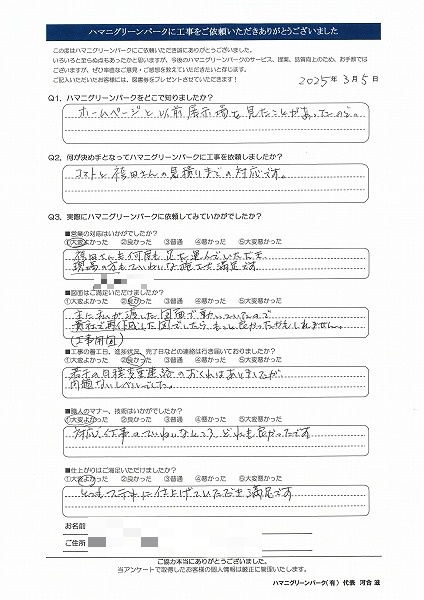 ハマニグリーンパークに工事をご依頼いただきありがとうございました
この度はハマニグリーンパークにご依頼いただき誠にありがとうございました。
いろいろと至らぬ点もあったかと思いますが、今後のハマニグリーンパークのサービス、提案、品質向上のため、お手数では
ございますが、ぜひ率直なご意見・ご感想を教えていただきたいと存じます。
ご記入いただいたお客様には、図書券をプレゼントさせていただきます！
2025年3月5日
Q1. ハマニグリーンパークをどこで知りましたか？
ホームページと以前展示場を見たことがあったので。
Q2. 何が決め手となってハマニグリーンパークに工事を依頼しましたか？
コストと福田さんの見積りまでの対応です。
Q3. 実際にハマニグリーンパークに依頼してみていかがでしたか？
■営業の対応はいかがでしたか？
①大変よかった ②良かった ③普通 ④悪かった ⑤大変悪かった
福田さんも何度も足を運んでいただき
現場の方もていねいな施工で満足です
■図面はご満足いただけましたか？
①大変よかった ②良かった ③普通 ④悪かった ⑤大変悪かった
主に私が渡した図面で動いていたので
貴社で再作成した図でしたら、もっと良かったかもしれません。
(工事用図)
■工事の着工日、進捗状況、完了日などの連絡は行き届いておりましたか？
①大変よかった ②良かった ③普通 ④悪かった ⑤大変悪かった
若干の日程変更連絡のおくれはありましたが
問題ないレベルでした。
■職人のマナー、技術はいかがでしたか？
①大変よかった ②良かった ③普通 ④悪かった ⑤大変悪かった
対応、仕事のていねいさ どれも良かったです
■仕上がりはご満足いただけましたか？
①大変よかった ②良かった ③普通 ④悪かった ⑤大変悪かった
とてもステキに仕上げていただき満足です
お名前
ご住所
ご協力本当にありがとうございました。
当アンケートで取得したお客様の個人情報は厳正に管理いたします。
ハマニグリーンパーク(有) 代表 河合 滋